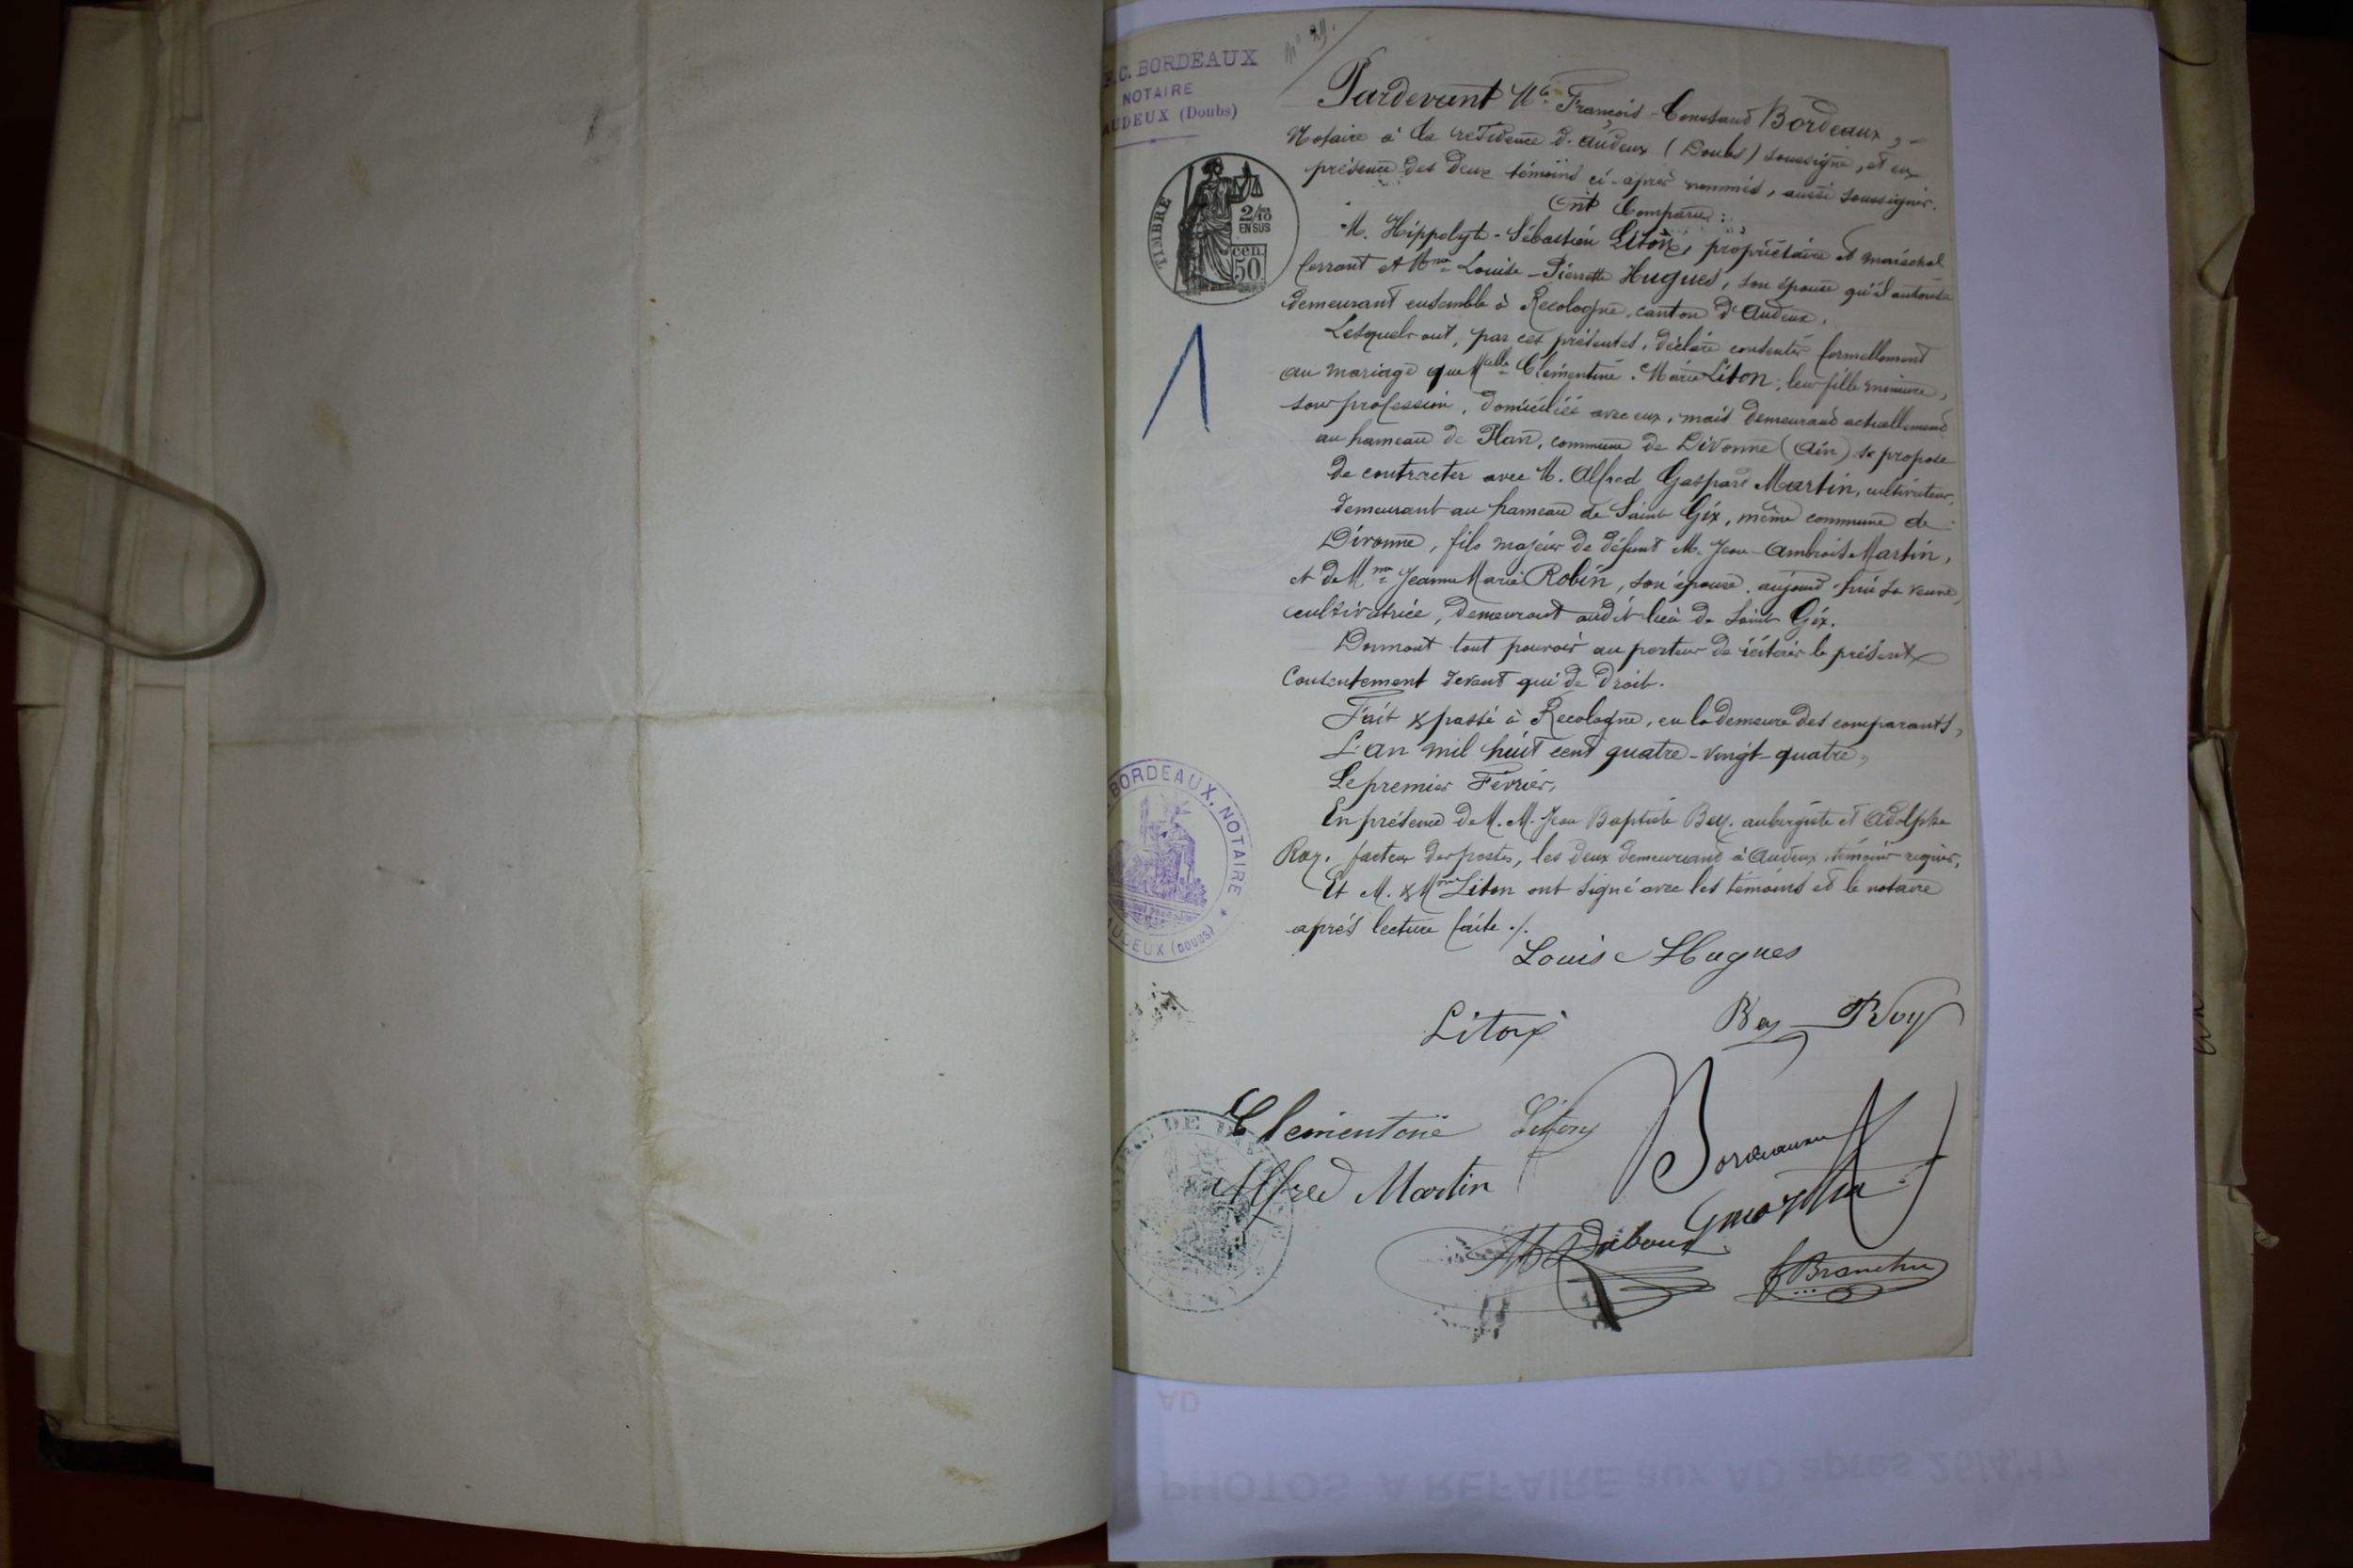 F.C. BORDEAUX
NOTAIRE
AUDEUX (Doubs)
N° 29.
TIMBRE
2/10
EN SUS
cen.
50
1
Pardevant Me François-Constant Bordeaux,
Notaire à la résidence d'Audeux (Doubs) soussigné, et en
présence des deux témoins ci-après nommés, aussi soussignés.
Ont Comparu :
M. Hippolyte-Sébastien Liton, propriétaire et maréchal
ferrant et Mme Louise-Pierrette Hugues, son épouse qu'il autorise
demeurant ensemble à Recologne, canton d'Audeux.
Lesquels ont, par ces présentes, déclaré consentir formellement
au mariage que Melle Clémentine-Marie Liton, leur fille mineure,
sans profession, domiciliée avec eux, mais demeurant actuellement
au hameau de Plan, commune de Divonne (Ain) se propose
de contracter avec M. Alfred Gaspard Martin, cultivateur,
demeurant au hameau de Saint Gix, même commune de
Divonne, fils majeur de défunt M. Jean-Ambroise Martin,
et de Mme Jeanne Marie Robin, son épouse, aujourd'hui sa veuve,
cultivatrice, demeurant audit lieu de Saint Gix.
Donnant tout pouvoir au porteur de réitérer le présent
Consentement devant qui de droit.
Fait & passé à Recologne, en la demeure des comparants,
L'an mil huit cent quatre-vingt-quatre,
Le premier Février,
En présence de M.M. Jean Baptiste Bey, aubergiste et Adolphe
Roy, facteur des postes, les deux demeurant à Audeux, témoins requis,
Et M. & Mme Liton ont signé avec les témoins et le notaire
après lecture faite ./.
BORDEAUX, NOTAIRE
AUDEUX (DOUBS)
Louise Hugues
Liton
Bey Roy
Clémentine Liton
Bordeaux
Alfred Martin
Dabout
AIN
AD
PHOTOS A REFAIRE aux AD après 25/4/17